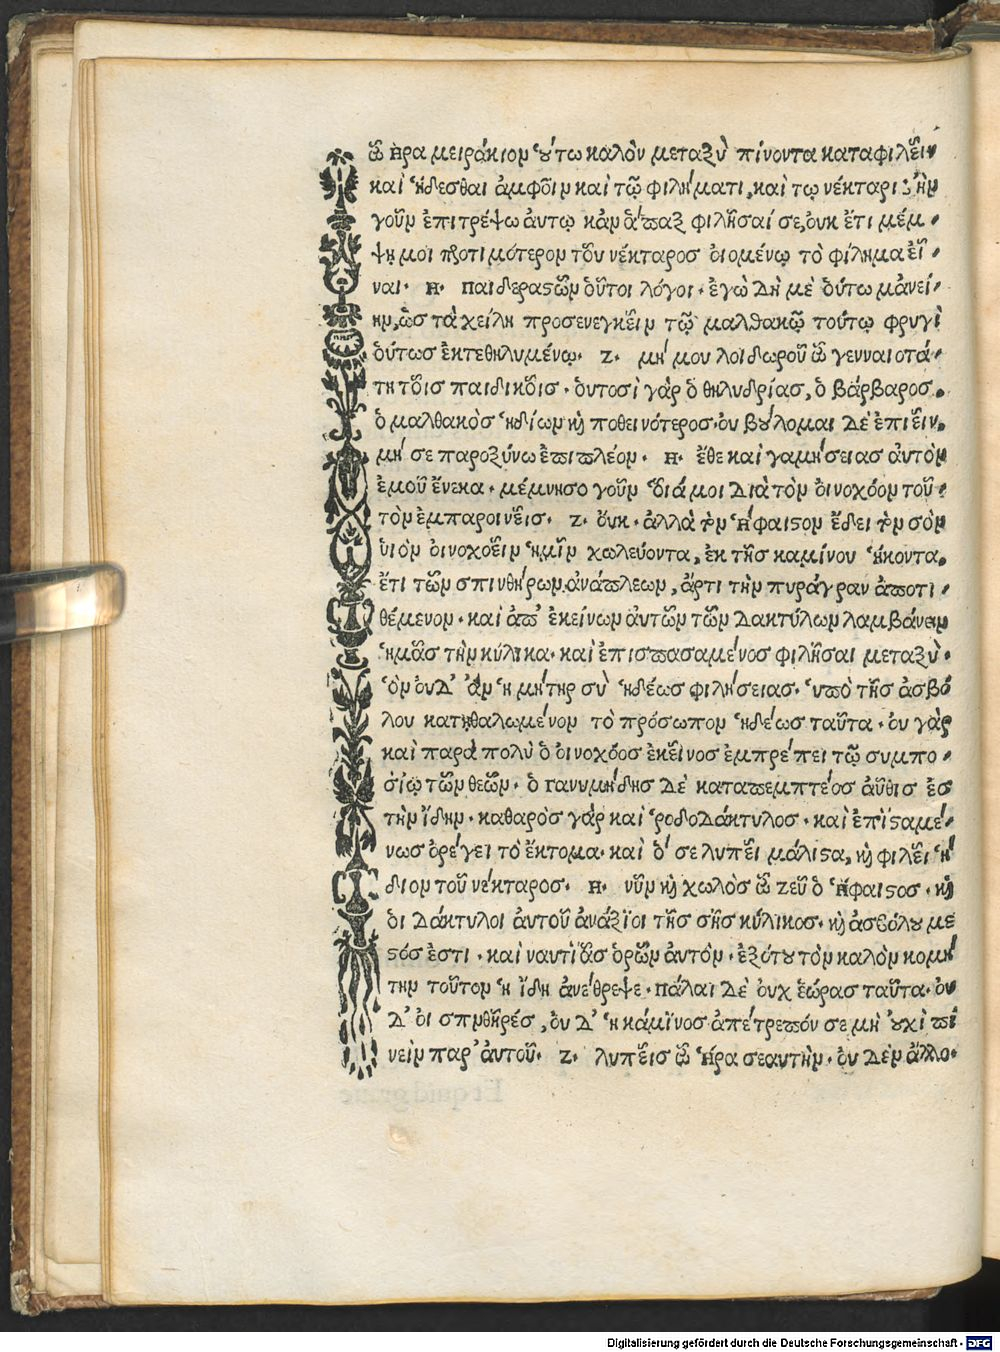 ὦ ἥρα μειράκιον ȣ́τω καλὸν μεταξὺ πίνοντα καταφιλεῖν
καὶ ἥδεσθαι ἀμφοῖν καὶ τῷ φιλήματι, καὶ τῳ νέκταρι: ἢν
γοῦν ἐπιτρέψω ἀυτῳ κἀν ἅπαξ φιλῆσαί σε, ὀυκ ἔτι μέμ-
ψῃ μοι προτιμότερον τοῦ νέκταρος ὀιομένῳ τὸ φίλημα εἶ-
ναι. Η. Παιδεραστῶν ὁῦτοι λόγοι. ἐγὼ δὴ μὲ ὁύτω μανεί-
ην, ὡς τὰ χείλη προσενεγκεῖν τῷ μαλθακῷ τούτῳ φρυγὶ
ὁύτως ἐκτεθηλυμένῳ. Ζ. μή μου λοιδωροῦ ὦ γενναιοτά-
τη τοῖς παιδικοῖς. ὁυτοσὶ γὰρ ὁ θηλυδρίας, ὁ βάρβαρος.
ὁ μαλθακὸς ἡδίων καὶ ποθεινότερος. ὀυ βȣ́λομαι δὲ ἐπιεῖν,
μή σε παροξύνω ἐπιπλέον. Η. ἔθε καὶ γαμήσειας ἀυτὸν
ἐμοῦ ἕνεκα. μέμνησο γοῦν διά μοι διὰ τὸν ὀινοχόον τοῦ-
τον ἐμπαροινεῖς. Ζ. ὄυκ. ἀλλὰ τὸν ἥφαιστον ἔδει τὸν σὸν
ὑιὸν ὀινοχοεῖν ἡμῖν χωλεύοντα, ἐκ τῆς καμίνου ἥκοντα.
ἔτι τῶν σπινθήρων ἀνάπλεων, ἄρτι τὴν πυράγραν ἀποτι-
θέμενον. καὶ ἀπ' ἐκείνων ἀυτῶν τῶν δακτύλων λαμβάνειν
ἡμᾶς τὴν κύλικα. καὶ ἐπισπασαμένος φιλῆσαι μεταξὺ.
ὃν ὀυδ' ἂν ἡ μήτηρ σὺ ἡδέως φιλήσειας. ὑπὸ τῆς ἀσβό
λου κατῃθαλωμένον τὸ πρόσωπον ἡδέως ταῦτα. ὀυ γὰρ
καὶ παρὰ πολὺ ὁ ὀινοχόος ἐκεῖνος ἐμπρέπει τῷ συμπο-
σίῳ τῶν θεῶν. ὁ Γανυμήδης δὲ καταπεμπτέος ἀῦθις ἐς
τὴν ἴδην. καθαρὸς γὰρ καὶ ῥοδοδάκτυλος. καὶ ἐπὶσταμέ-
νως ὀρέγει τὸ ἔκτομα. καὶ ὅ σε λυπεῖ μάλιστα, καὶ φιλεῖ ἥ
διον τοῦ νέκταρος. Η. νῦν καὶ χωλὸς ὦ Ζεῦ ὁ ἥφαιστος. καὶ
ὁι δάκτυλοι ἀυτοῦ ἀνάξιοι τῆς σῆς κύλικος. καὶ ἀσβόλȣ με
στός ἐστι. καὶ ναυτιᾷς ὁρῶν ἀυτὸν. ἐξότȣ τὸν καλὸν κομή
την τοῦτον ἡ ἴδη ἀνέθρεψε. πάλαι δὲ ὀυχ ἑώρας ταῦτα. ὀυ
δ' ὁι σπινθῆρές, ὀυ δ' ἡ κάμῖνος ἀπέτρεπόν σε μὴ ȣ̓χὶ πί
νεὶν παρ' ἀυτοῦ. Ζ. λυπεῖς ὦ ἥρα σεαυτὴν. ὀυ δὲν ἄλλο.
Digitalisierung gefördert durch die Deutsche Forschungsgemeinschaft - DFG